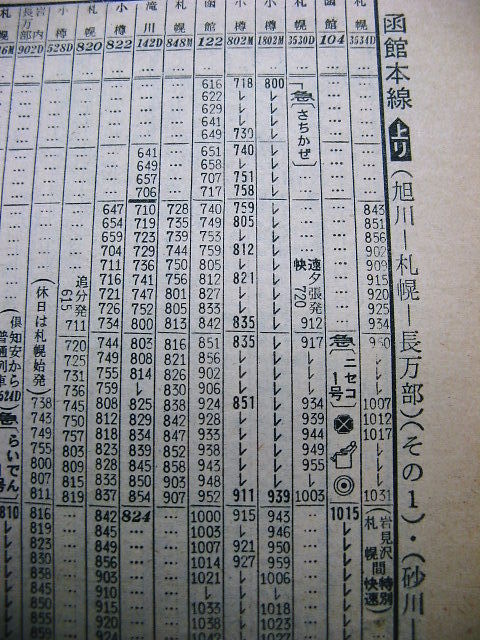 函館本線 上り (旭川―札幌―長万部)(その1)・(砂川―
札幌 長万部 岩内 小樽 札幌 小樽 滝川 札幌 函館 小樽 小樽 札幌 函館 札幌
16M 902D 528D 820 822 142D 848M 122 802M 1802M 3530D 104 3534D
616 718 800
622 レ レ
629 レ レ
641 レ レ
649 730 レ
急 さちかぜ
641 651 740 レ
649 658 レ レ
657 707 751 レ
706 717 758 レ
647 710 728 740 759 レ 843
654 719 735 749 805 レ 851
659 723 739 753 レ レ 856
704 729 744 759 812 レ 902
711 736 750 805 レ レ 909
716 741 756 812 821 レ 915
721 747 801 827 レ レ 920
726 752 805 833 レ レ 925
711 734 800 813 842 835 レ 912 934
追分発 615
快速 夕張発 720
(休日は札幌始発)
720 744 803 816 851 835 レ 917
725 749 808 821 856 レ レ レ レ
731 755 814 826 902 レ レ レ レ
736 759 レ 830 906 レ レ レ レ
738 745 808 825 838 924 851 レ 934 1007
743 750 812 829 842 928 レ レ 939 1012
749 757 818 834 847 933 レ レ 944 1017
755 803 823 839 852 938 レ レ 949 レ
800 809 828 845 858 943 レ レ 955 レ
807 815 833 850 903 948 レ レ レ レ
811 819 837 854 907 952 911 939 1003 1031
急 ニセコ1号
倶知安から普通列車 524D
急 らいでん 1号
810 816 842 824 1000 915 943 1015
レ 819 845 1003 レ 946 レ
レ 823 849 1007 921 950 レ
レ 830 856 1014 927 959 レ
レ 838 903 1021 レ 1006 レ
レ 843 910 レ レ レ レ
レ 850 915 1033 レ 1018 レ
レ 855 919 1038 レ 1023 レ
岩見沢―札幌間 特別快速